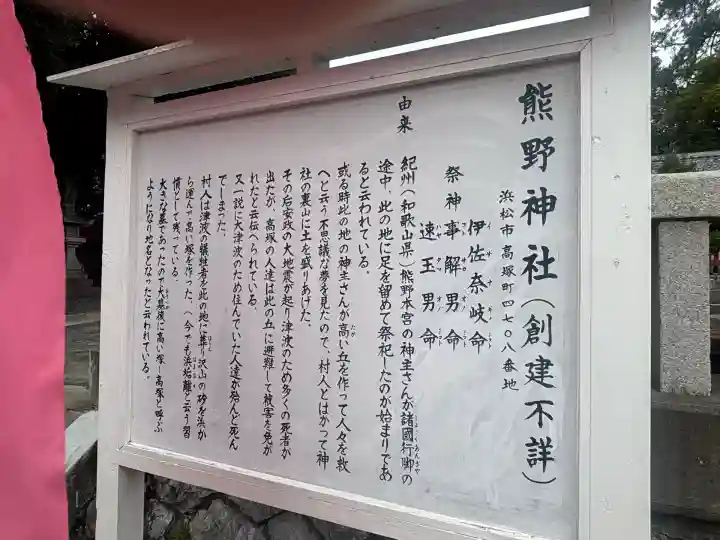 熊野神社（創建不詳）
浜松市高塚町四七〇八番地
伊佐奈岐命
祭神 事解男命
速玉男命
由来 紀州（和歌山県）熊野本宮の神主さんが諸國行脚の
途中、此の地に足を留めて祭祀したのが始まりであ
ると云われている。
或る時此の地の神主さんが高い丘を作って人々を救
へと云う不思議な夢を見たので、村人とはかって神
社の裏山に土を盛りあげた。
その后安政の大地震が起り津波のため多くの死者が
出たが、高塚の人達は此の丘に避難して被害を免が
れたと云伝へられている。
又一説に大津波のため住んでいた人達が殆んど死ん
でしまった。
村人は津波の犠牲者を此の地に葬り沢山の砂を浜か
ら運んで高い塚を作った。（今でも浜垢離と云う習
慣として残っている。
大きな墓であったので大墓後に高い塚－高塚と呼ぶ
ようになり地名となったと云われている。